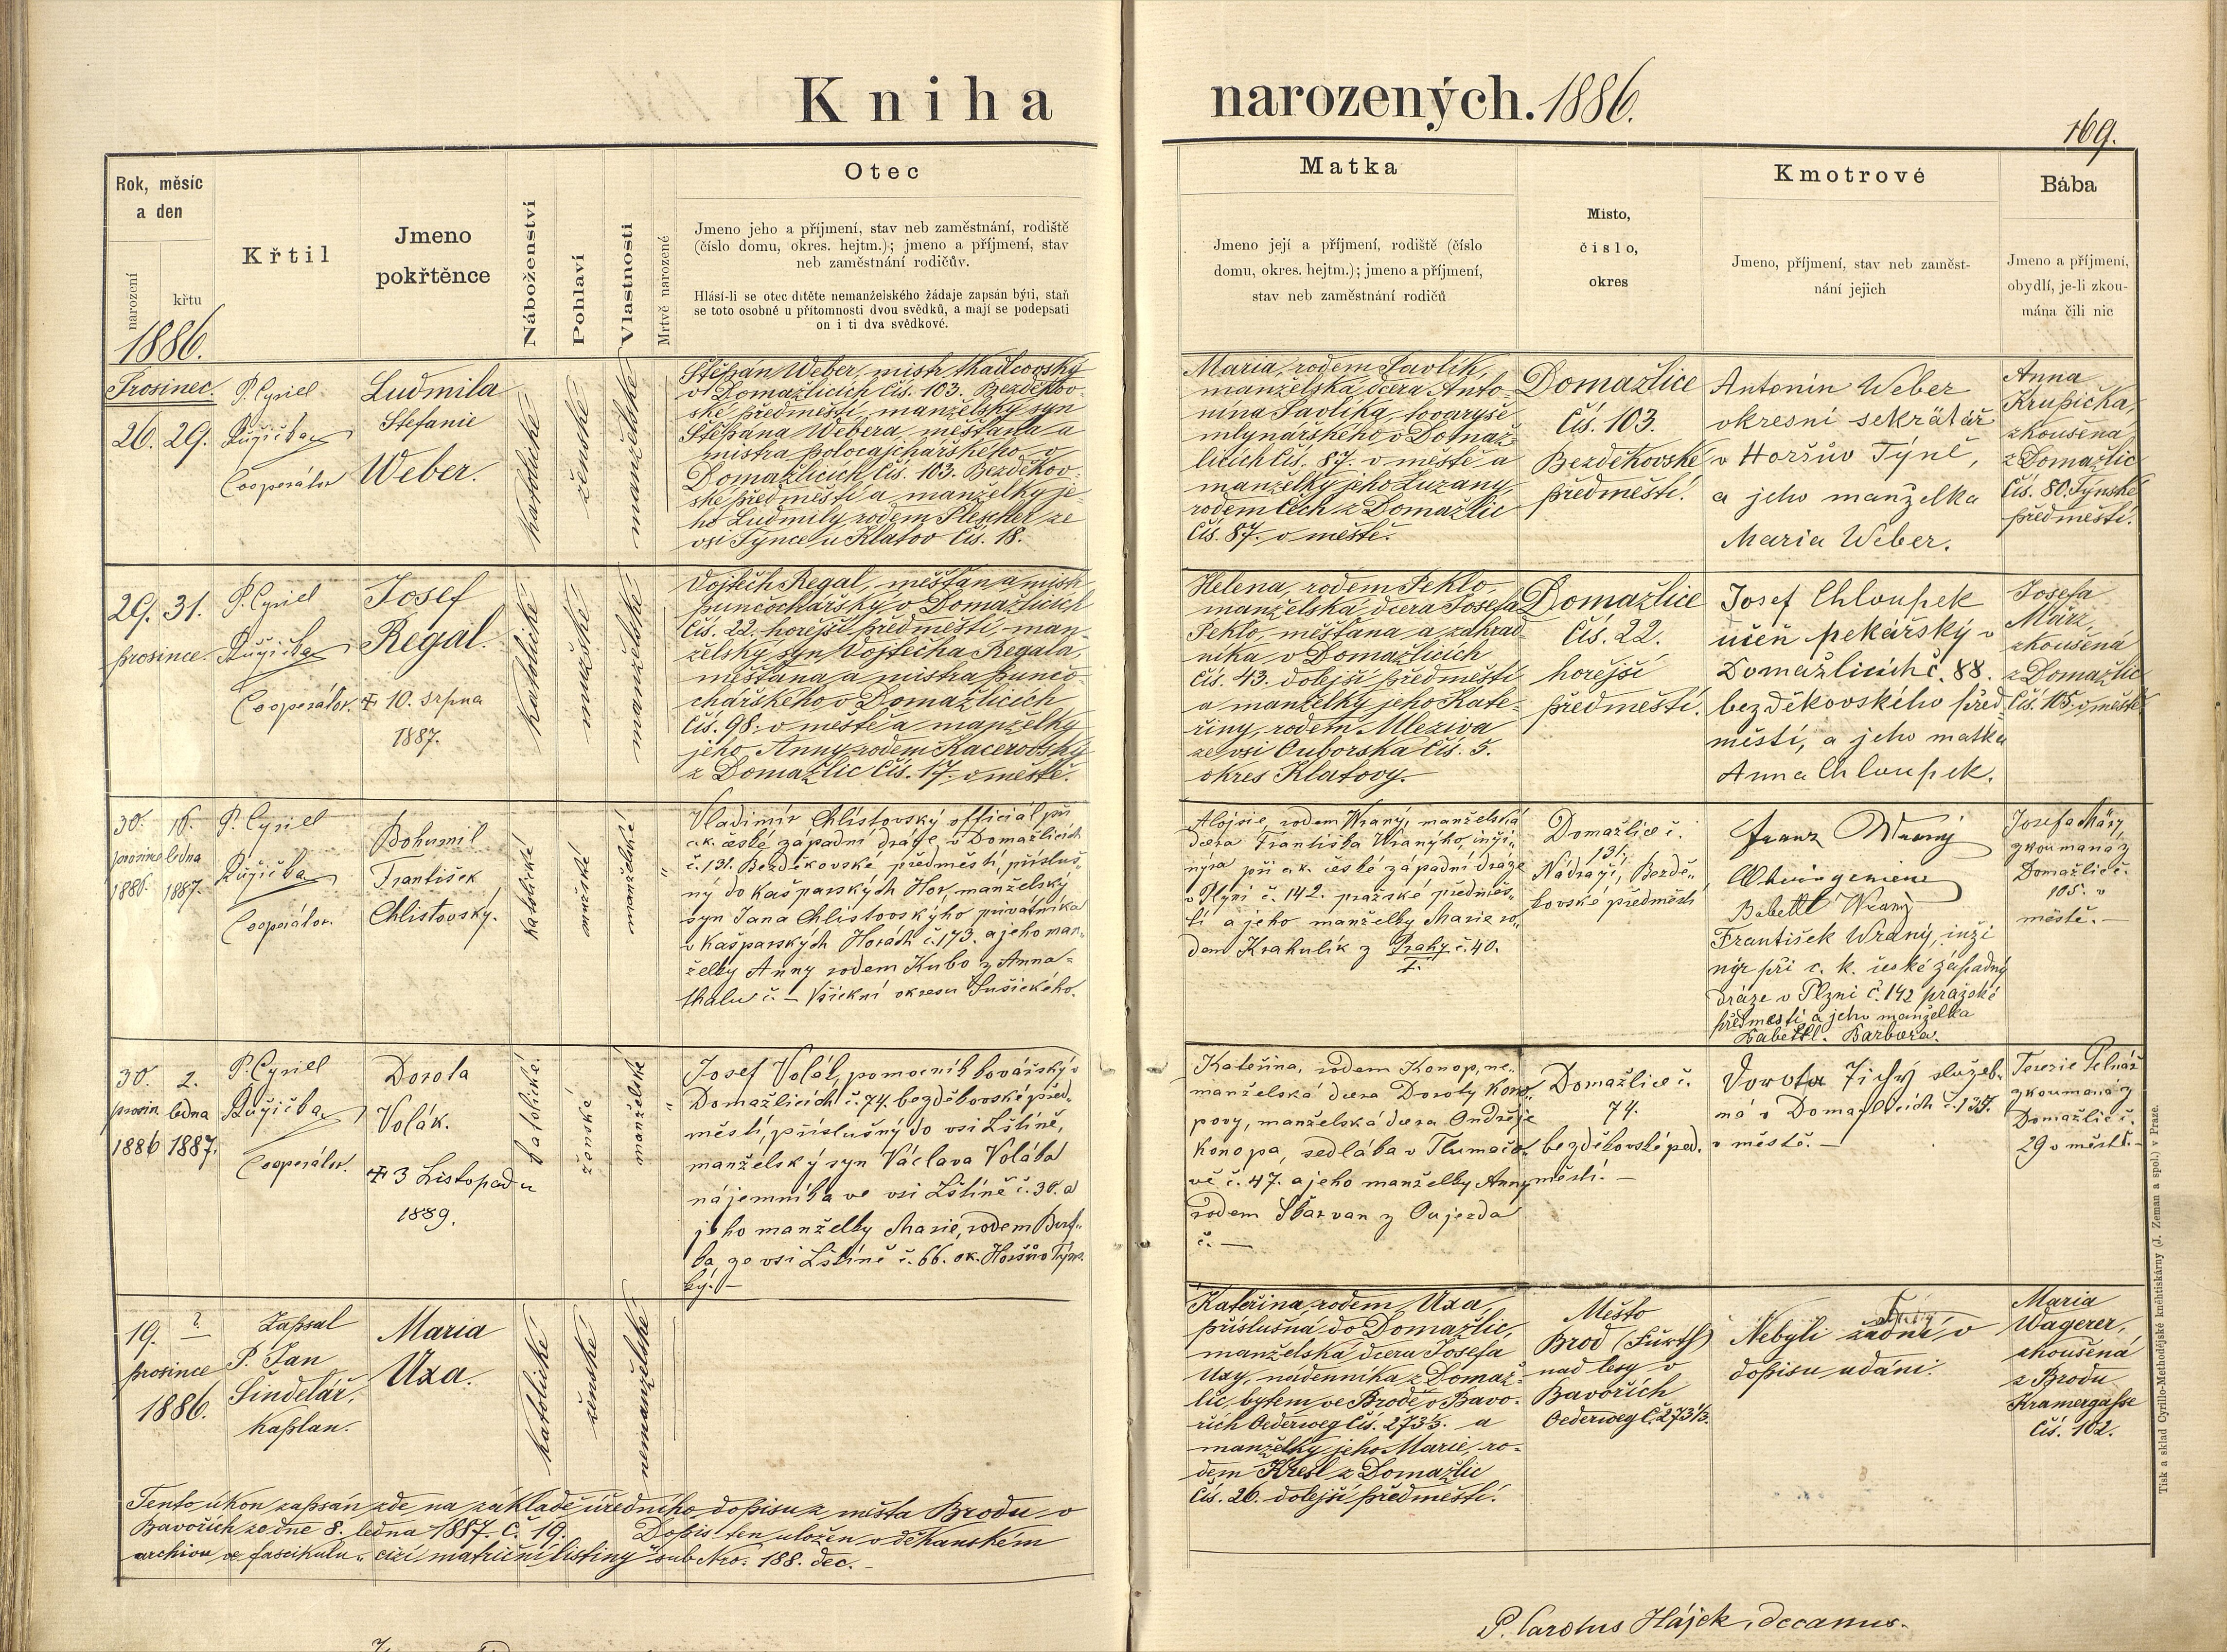 Kniha narozených. 1886.
169.
Rok, měsíc a den
narození
křtu
1886.
Křtil
Jmeno pokřtěnce
Náboženství
Pohlaví
Vlastnosti
Mrtvě narozené
Otec
Jmeno jeho a příjmení, stav neb zaměstnání, rodiště
(číslo domu, okres. hejtm.); jmeno a příjmení, stav
neb zaměstnání rodičův.
Hlásí-li se otec dítěte nemanželského žádaje zapsán býti, staň
se toto osobně u přítomnosti dvou svědků, a mají se podepsati
on i ti dva svědkové.
Matka
Jmeno její a příjmení, rodiště (číslo
domu, okres. hejtm.); jmeno a příjmení,
stav neb zaměstnání rodičů
Místo,
číslo,
okres
Kmotrové
Jmeno, příjmení, stav neb zaměst-
nání jejich
Bába
Jmeno a příjmení,
obydlí, je-li zkou-
mána čili nic
Prosinec.
26. 29.
P. Cyriel
Růžička
Cooperátor
Ludmila
Stefanie
Weber.
katolické
ženské
manželské
Štěpán Weber, mistr tkadlcovský
v Domažlicích čís. 103. Bezděkov-
ské předměstí, manželský syn
Štěpána Webera, měšťana a
mistra v
Domažlicích, čís. 103. Bezděkov-
ské předměstí a manželky je-
ho Ludmily rodem Plescher ze
vsi Týnce u Klatov čís. 18.
Maria, rodem Pavlík,
manželská dcera Anto-
nína Pavlíka, tovaryše
mlynářského v Domaž-
licích čís. 87. v městě a
manželky jeho Zuzany,
rodem Čech z Domažlic
čís. 87. v městě.
Domažlice
Čís. 103.
Bezděkovské
předměstí.
Antonín Weber
okresní sekrätář
v Horšův Týně,
a jeho manželka
Maria Weber.
Anna
Krupička,
zkoušena
z Domažlic
čís. 80. Týnské
předměstí.
29. 31.
prosince.
P. Cyriel
Růžička
Cooperátor.
Josef
Regal.
✝ 10. srpna
1887.
katolické
mužské
manželské
Vojtěch Regal, měšťan a mistr
punčochářský v Domažlicích
čís. 22. hořejší předměstí, man-
želský syn Vojtěcha Regala,
měšťana a mistra punčo-
chářského v Domažlicích
čís. 98. v městě a manželky
jeho Anny, rodem Kacerovský
z Domažlic čís. 17. v městě.
Helena, rodem Peklo,
manželská dcera Josefa
Peklo, měšťana a zahrad-
níka v Domažlicích
čís. 43. dolejší předměstí
a manželky jeho Kate-
řiny, rodem Mleziva
ze vsi Ouborska čís. 5.
okres Klatovy.
Domažlice
Čís. 22.
hořejší
předměstí.
Josef Chloupek
učeň pekářský v
Domažlicích č. 88.
bezděkovského před-
městí, a jeho matka
Anna Chloupek.
Josefa
März,
zkoušená
z Domažlic
čís. 105. v městě
30. 16.
prosince ledna
1886. 1887.
P. Cyriel
Růžička
Cooperátor.
Bohumil
František
Chlistovský.
katolické
mužské
manželské
"
Vladimír Chlistovský official při
c.k. české západní dráze, v Domažlicích
č. 131. Bezděkovské předměstí, přísluš-
ný do Kašparských Hor, manželský
syn Jana Chlistovskýho privátníka
v Kašparských Horách č. 173. a jeho man-
želky Anny rodem Kubo z Anna-
thalu č. — Všickni okresu Sušického.
Alojsie, rodem Wraný, manželská
dcera Františka Wranýho, inži-
nýra při c.k. české západní dráze
v Plzni č. 142. pražské předměs-
tí a jeho manželky Marie ro-
dem Krakulík z Prahy č. 40.
I.
Domažlice č.
131.
Nádraží, Bezdě-
kovské předměstí
Franz Wraný
Babette Wraný
František Wraný, inži
nýr při c. k. české západný
dráze v Plzni č. 142 pražské
předměstí, a jeho manželka
Babettl. Barbora.
Josefa März,
zkoumaná z
Domažlic č.
105. v
městě. —
30. 2.
prosin. ledna
1886 1887.
P. Cyriel
Růžička
Cooperátor.
Dorota
Volák.
✝ 3 Listopadu
1889.
katolické
ženské
manželské
"
Josef Volák, pomocník kovářský v
Domažlicích č. 74. bezděkovské před-
městí, příslušný do vsi Lštíně,
manželský syn Václava Voláka
nájemníka ve vsi Lštíně č. 30. a
jeho manželky Marie, rodem
ka, ze vsi Lštíně č. 66. ok. Horšův Týn-
ský. —
Kateřina, rodem Konop, ne-
manželská dcera Doroty Kono-
povy, manželská dcera Ondřeje
Konopa, sedláka v Tlumačo-
vě č. 47. a jeho manželky Anny
rodem Skarvan z Oujezda
č. —
Domažlice č.
74.
bezděkovské před.
městí. —
Dorota Tichý služeb-
ná v Domažlicích č. 135.
v městě. —
Terezie Pelnář
zkoumaná z
Domažlic č.
29 v městě. —
19. ?
prosince
1886.
Zapsal
P. Jan
Šindelář,
kaplan.
Maria
Uxa.
katolické
ženské
nemanželské
Kateřina, rodem Uxa,
příslušná do Domažlic,
manželská dcera Josefa
Uxy, nádenníka z Domaž-
lic, bytem ve Brodě v Bavo-
řích Oederweg čís. 273⅓. a
manželky jeho Marie, ro-
dem Kresl z Domažlic
čís. 26. dolejší předměstí.
Město
Brod (Fürth)
nad lesy v
Bavořích
Oederweg č. 273⅓.
Nebyli žádní v
dopisu udáni.
Maria
Wagerer,
zkoušená
z Brodu
Kramergasse
čís. 102.
Tento úkon zapsán zde na základě úředního dopisu z města Brodu v
Bavořích ze dne 8. ledna 1887. č. 19. Dopis ten uložen v děkanském
archivu ve fascikulu „cizí matriční listiny" sub Nro. 188. dec. —
P. Carolus Hájek, decanus.
Tisk a sklad Cyrillo-Methodějské knihtiskárny (J. Zeman a spol.) v Praze.